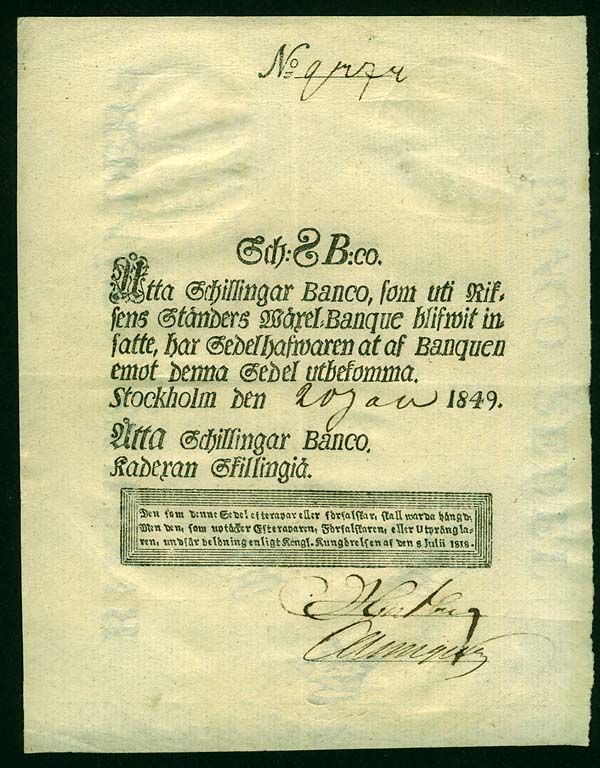 No
Sch: 8 B:co.
Åtta Schillingar Banco, som uti Rik-
sens Ständers Wäxel-Banque blifwit in-
satte, har Sedelhafwaren at af Banquen
emot denna Sedel utbekomma.
Stockholm den 20 Jan 1849.
Åtta Schillingar Banco.
Kadexan Skillingiä.
Den som denne Sedel efterapar eller förfalskar, skall warda hängd;
Men den, som uptäcker Efteraparen, Förfalskaren, eller Utprångla-
ren, undfår belöning enligt Kongl. Kungörelsen af den 8 Julii 1818.